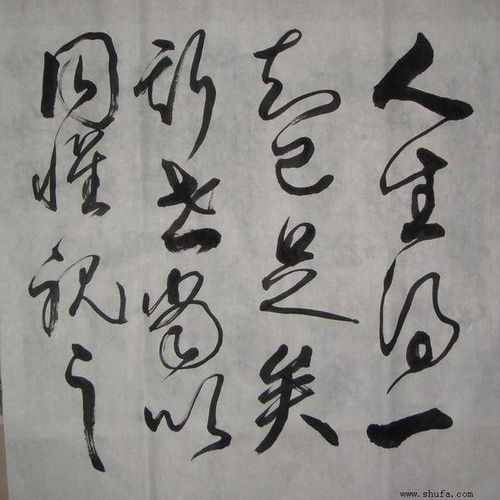 人生得一
知己足矣
斯世當以
同懷視之
www.shufa.com